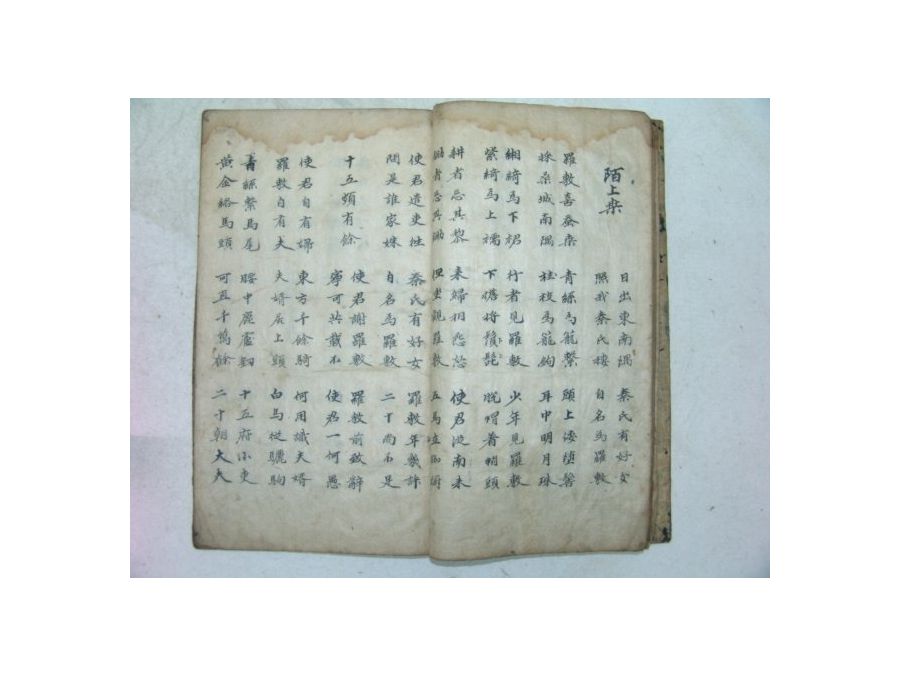 陌上桒
日出東南隅
照我秦氏樓
秦氏有好女
自名為羅敷
羅敷喜蚕桒
採桒城南隅
青絲為籠繫
桂枝為籠鉤
頭上倭墮髻
耳中明月珠
緗綺為下裙
紫綺為上襦
行者見羅敷
下擔捋鬚髭
少年見羅敷
脫帽着帩頭
耕者忘其黎
鋤者忘其鋤
来婦相怨怒
但坐觀羅敷
使君從南来
五馬立踟躕
使君遣吏徃
問是誰家姝
秦氏有好女
自名為羅敷
羅敷年幾許
二十尚不足
十五頗有餘
使君謝羅敷
寧可共載不
羅敷前致辭
使君一何愚
使君自有婦
羅敷自有夫
東方千餘騎
夫婿居上頭
何用識夫婿
白馬從驪駒
青絲繫馬尾
黃金絡馬頭
腰中鹿盧釰
可直千萬餘
十五府小吏
二十朝大夫